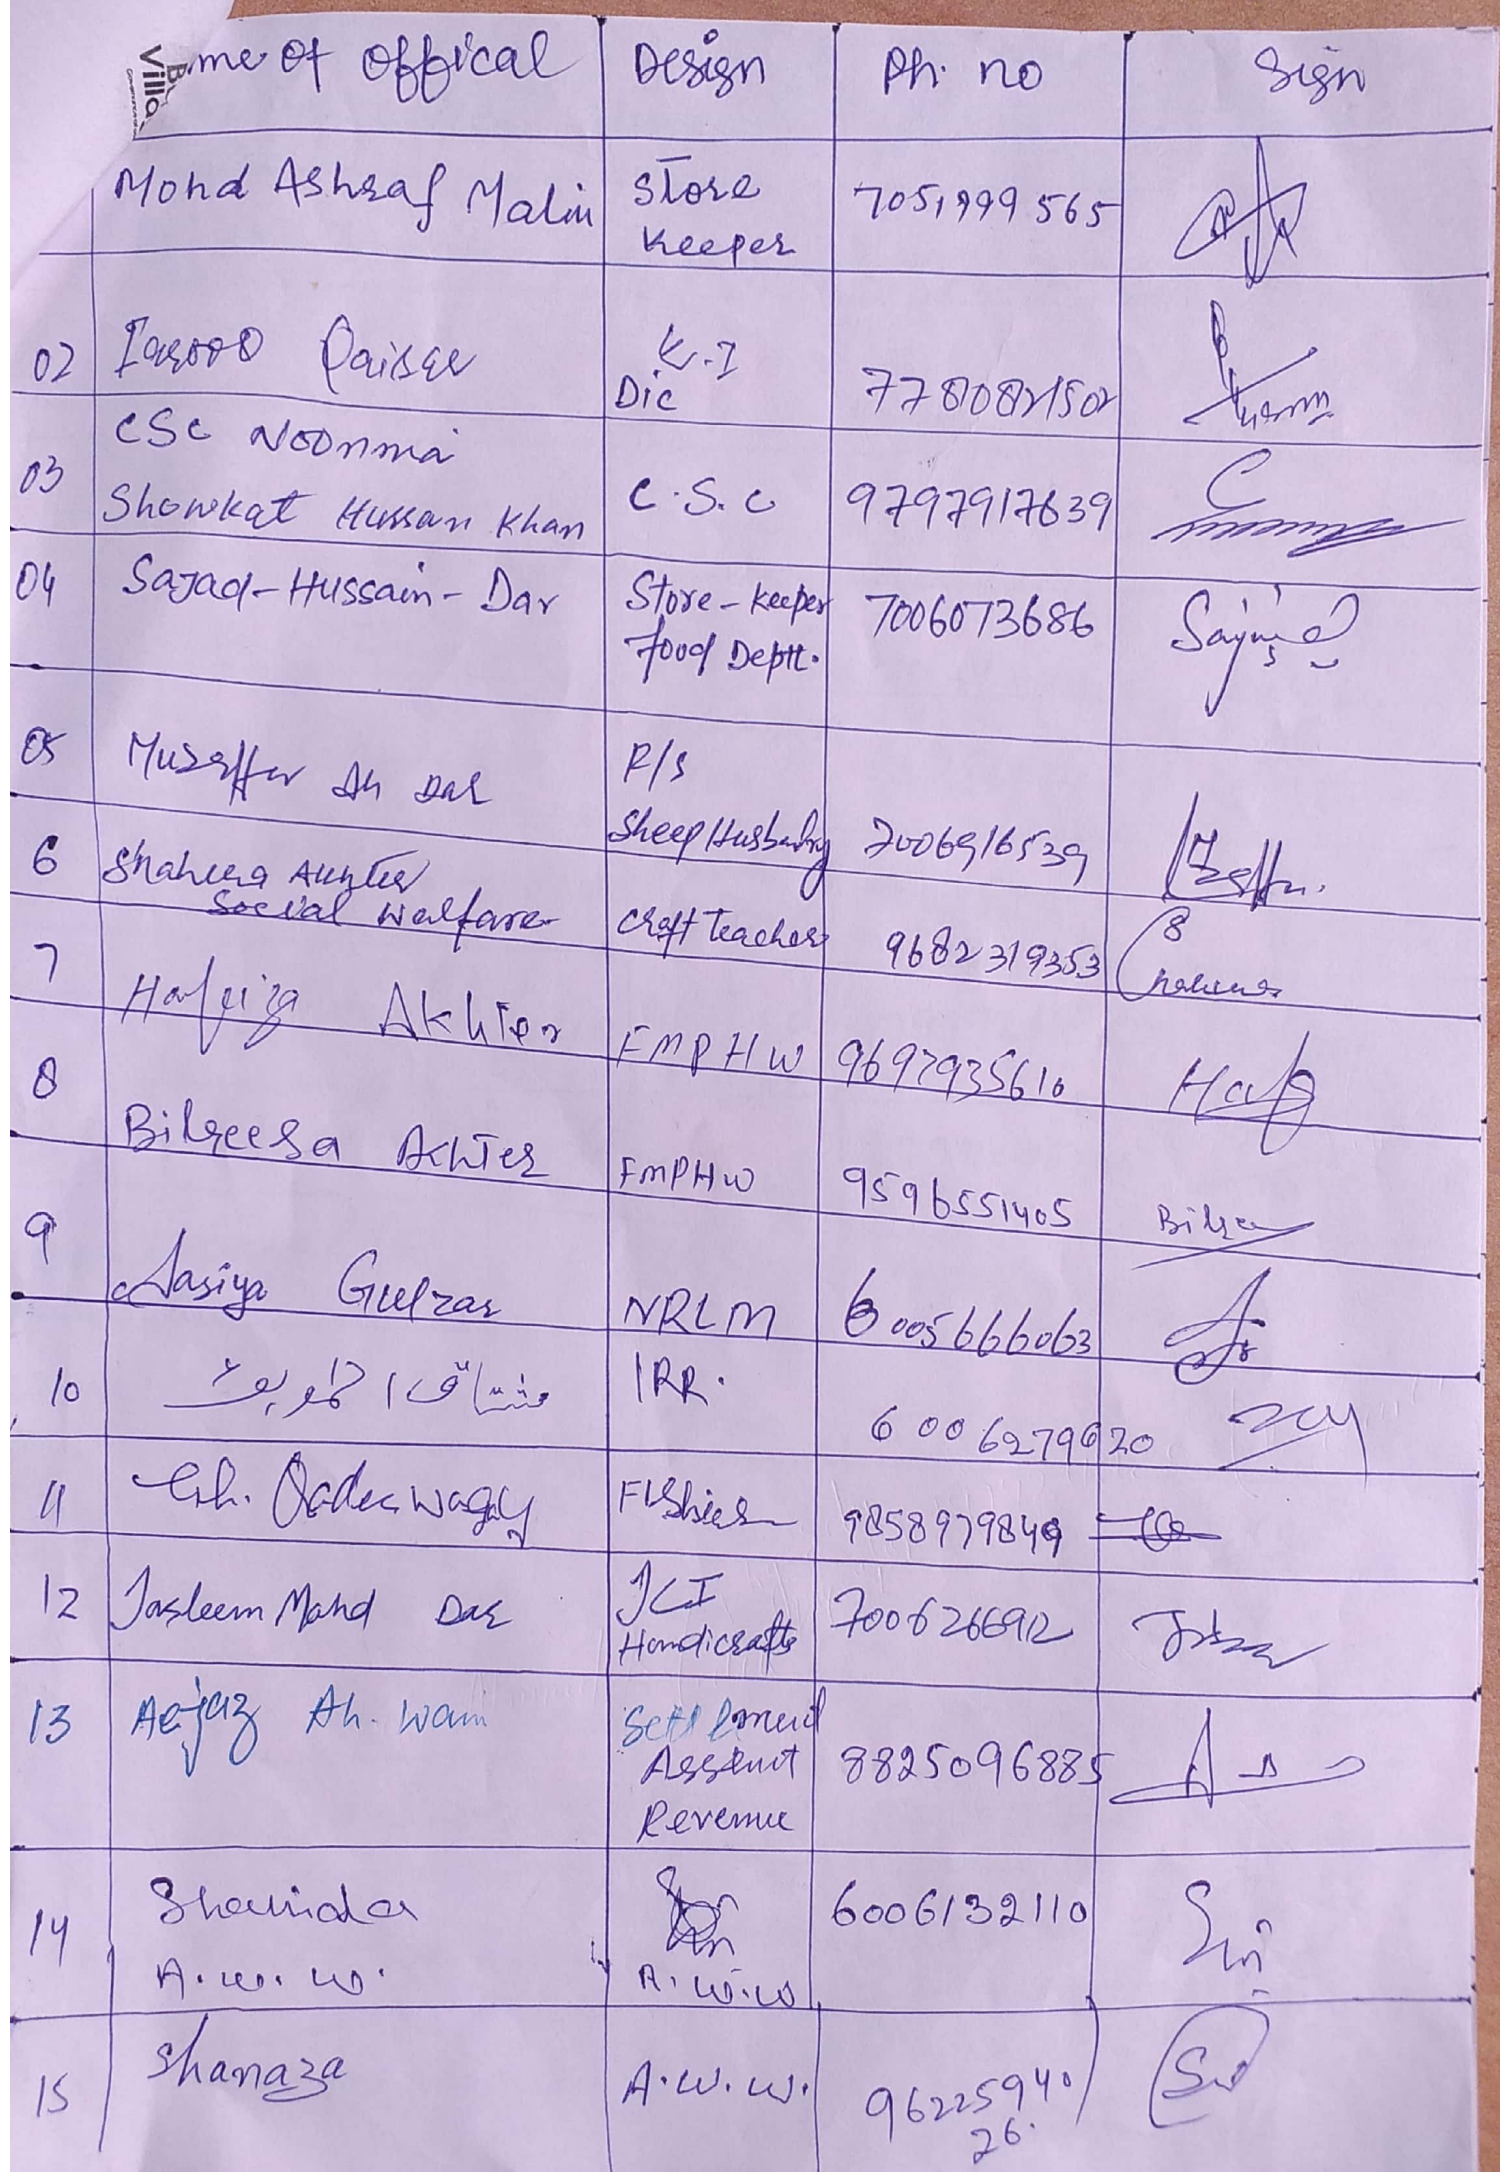 me of offical Design Ph. no Sign
Villa
Mohd Ashraf Malik Store Keeper 7051999565
02 Farooq Qaisar K.I Dic 7780821502
03 CSC Noonmai
Showkat Hussan Khan C.S.C 9797917639
04 Sajad-Hussain-Dar Store-keeper Food Deptt. 7006073686 Sajad
05 Muzaffar Ah Dar P/s Sheep Husbandry 7006916539
6 Shaheena Akhter
Social Welfare Craft Teacher 9682319353
7 Hafeiza Akhter FMPHW 9697935610 Haf
8 Bilqeesa Akhter FMPHW 9596551405 Bilqe
9 Aasiya Gulzar NRLM 6005666063
10 مشتاق احمد بٹ IRR. 6006279620
11 Gh. Qader Wagay Fisheries 9858979849
12 Tasleem Mohd Dar JCI Handicrafts 7006266912
13 Aejaz Ah. Wani Settlement
Assstnt
Revenue 8825096885
14 Shamida
A.W.W. A.W.W 6006132110
15 Shanaza A.W.W. 96225940
26.